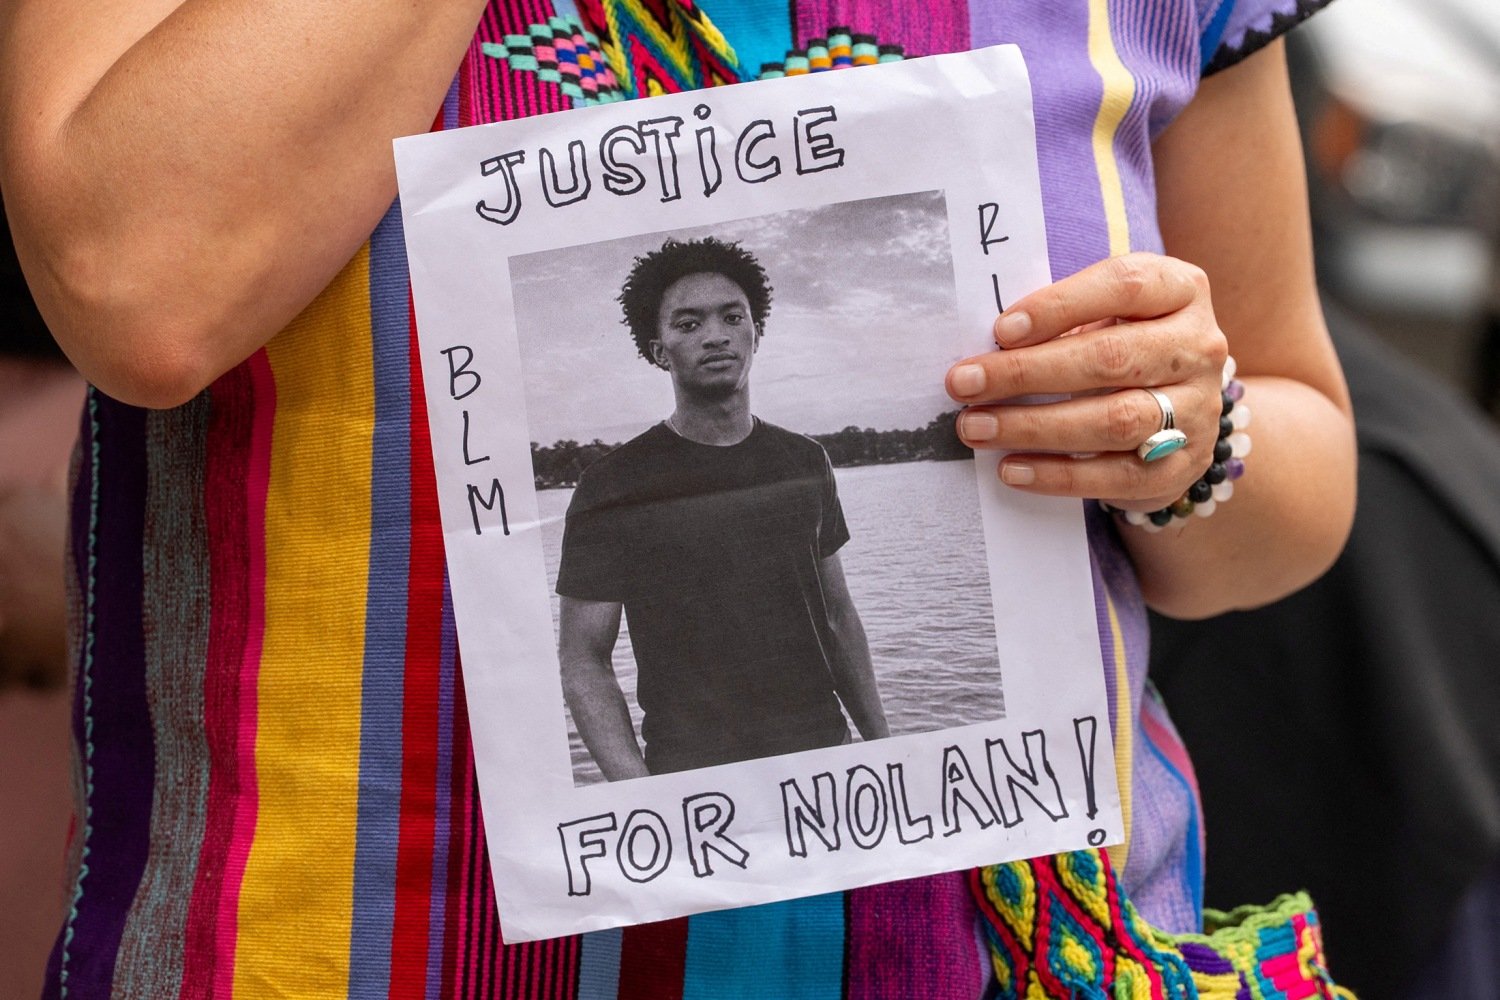 JUSTiCE
BLM
RI
FOR NOLAN!